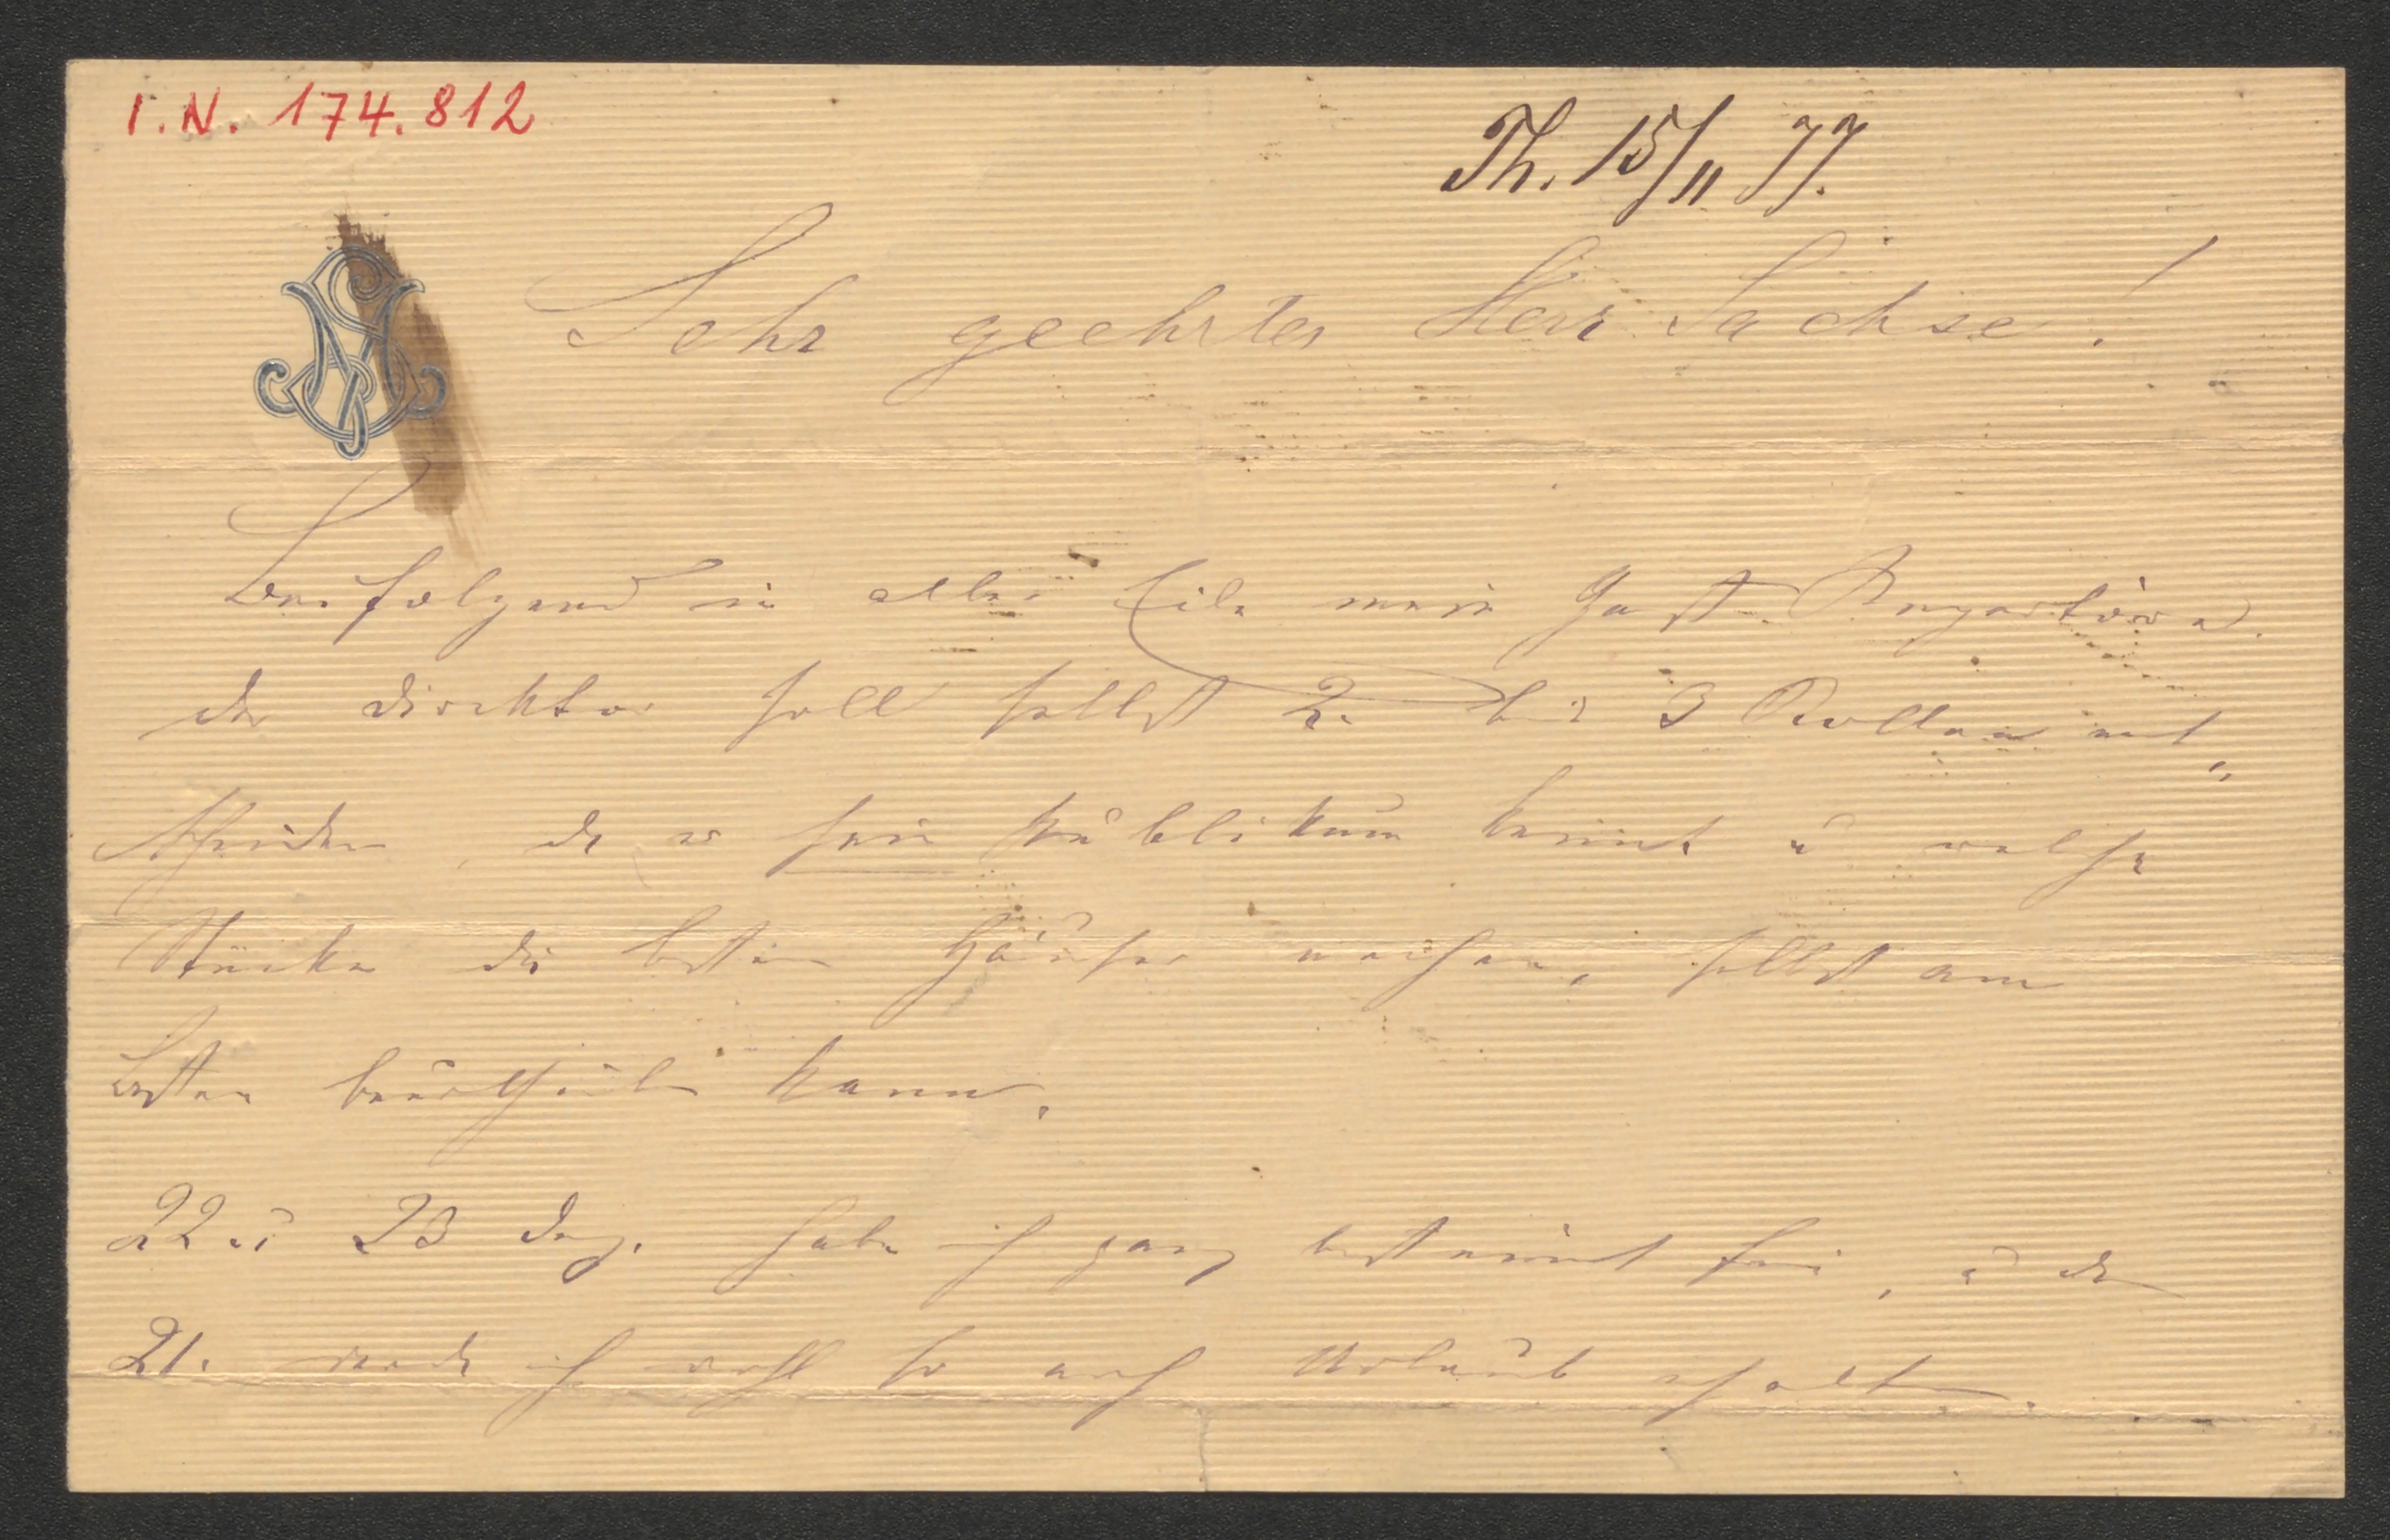 I.N. 174.812
Th. 15/11 77.
Sehr geehrter Herr Sachse!
Beifolgend in aller Eile mein Gast-Repertoire.
der Direktor soll selbst 2. bis 3 Rollen ent„
scheiden, da er sein Publikum kennt u welche
Stücke die besten Häuser machen, selbst am
besten beurtheilen kann.
22 u 23 Dez. habe ich ganz bestimmt frei, u den
21. werde ich wohl so auch Urlaub erhalten.